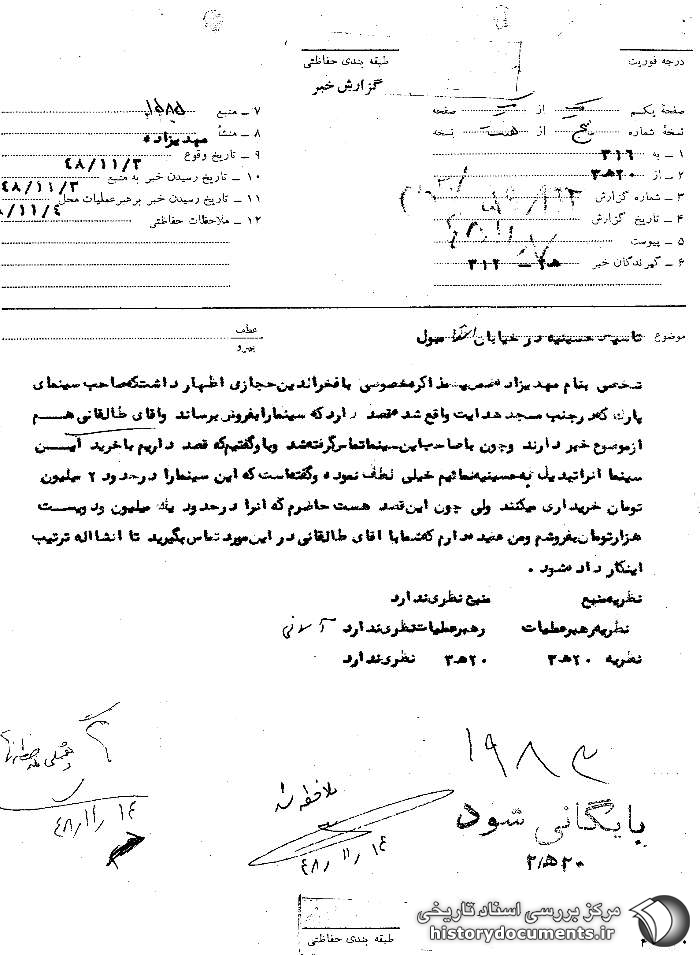 درجه فوریت
طبقه بندی حفاظتی
گزارش خبر
صفحهٔ یکم از صفحه
نسخهٔ شماره پنج از هفت نسخه
۱ ـ به ۳۱۶
۲ ـ از ۲۰ﻫ۳
۳ ـ شماره گزارش
۴ ـ تاریخ گزارش
۵ ـ پیوست
۶ ـ گیرندگان خبر ۳۱۲
۷ ـ منبع
۸ ـ منشأ مهدیزاده
۹ ـ تاریخ وقوع ۴۸/۱۱/۳
۱۰ ـ تاریخ رسیدن خبر به منبع ۴۸/۱۱/۳
۱۱ ـ تاریخ رسیدن خبر برهبرعملیات محل ۸/۱۱/۴
۱۲ ـ ملاحظات حفاظتی
موضوع تاسیس حسینیه در خیابان استانبول
عطف
پیرو
شخصی بنام مهدیزاده ضمن یک مذاکره خصوصی با فخرالدین حجازی اظهار داشت که صاحب سینمای
پارک که در جنب مسجد هدایت واقع شده قصد دارد که سینما را بفروش برساند و آقای طالقانی هم
از موضوع خبر دارند و چون با صاحب این سینما تماس گرفته شد و باو گفتیم که قصد داریم با خرید این
سینما آنرا تبدیل به حسینیه نمائیم خیلی لطف نموده و گفته است که این سینما را در حدود ۲ میلیون
تومان خریداری میکنند ولی چون این قصد هست حاضرم که آنرا در حدود یک میلیون و دویست
هزار تومان بفروشم و من عقیده دارم که شما با آقای طالقانی در این مورد تماس بگیرید تا انشااله ترتیب
اینکار داده شود .
نظریه منبع منبع نظری ندارد
نظریه رهبر عملیات رهبر عملیات نظری ندارد
نظریه ۲۰ﻫ۳ ۲۰ﻫ۳ نظری ندارد
۱۹۸۳
ملاحظه شد
۴۸/۱۱/۱۴
۴۸/۱۱/۱۴
بایگانی شود
۲۰ﻫ۲
طبقه بندی حفاظتی
مرکز بررسی اسناد تاریخی
historydocuments.ir